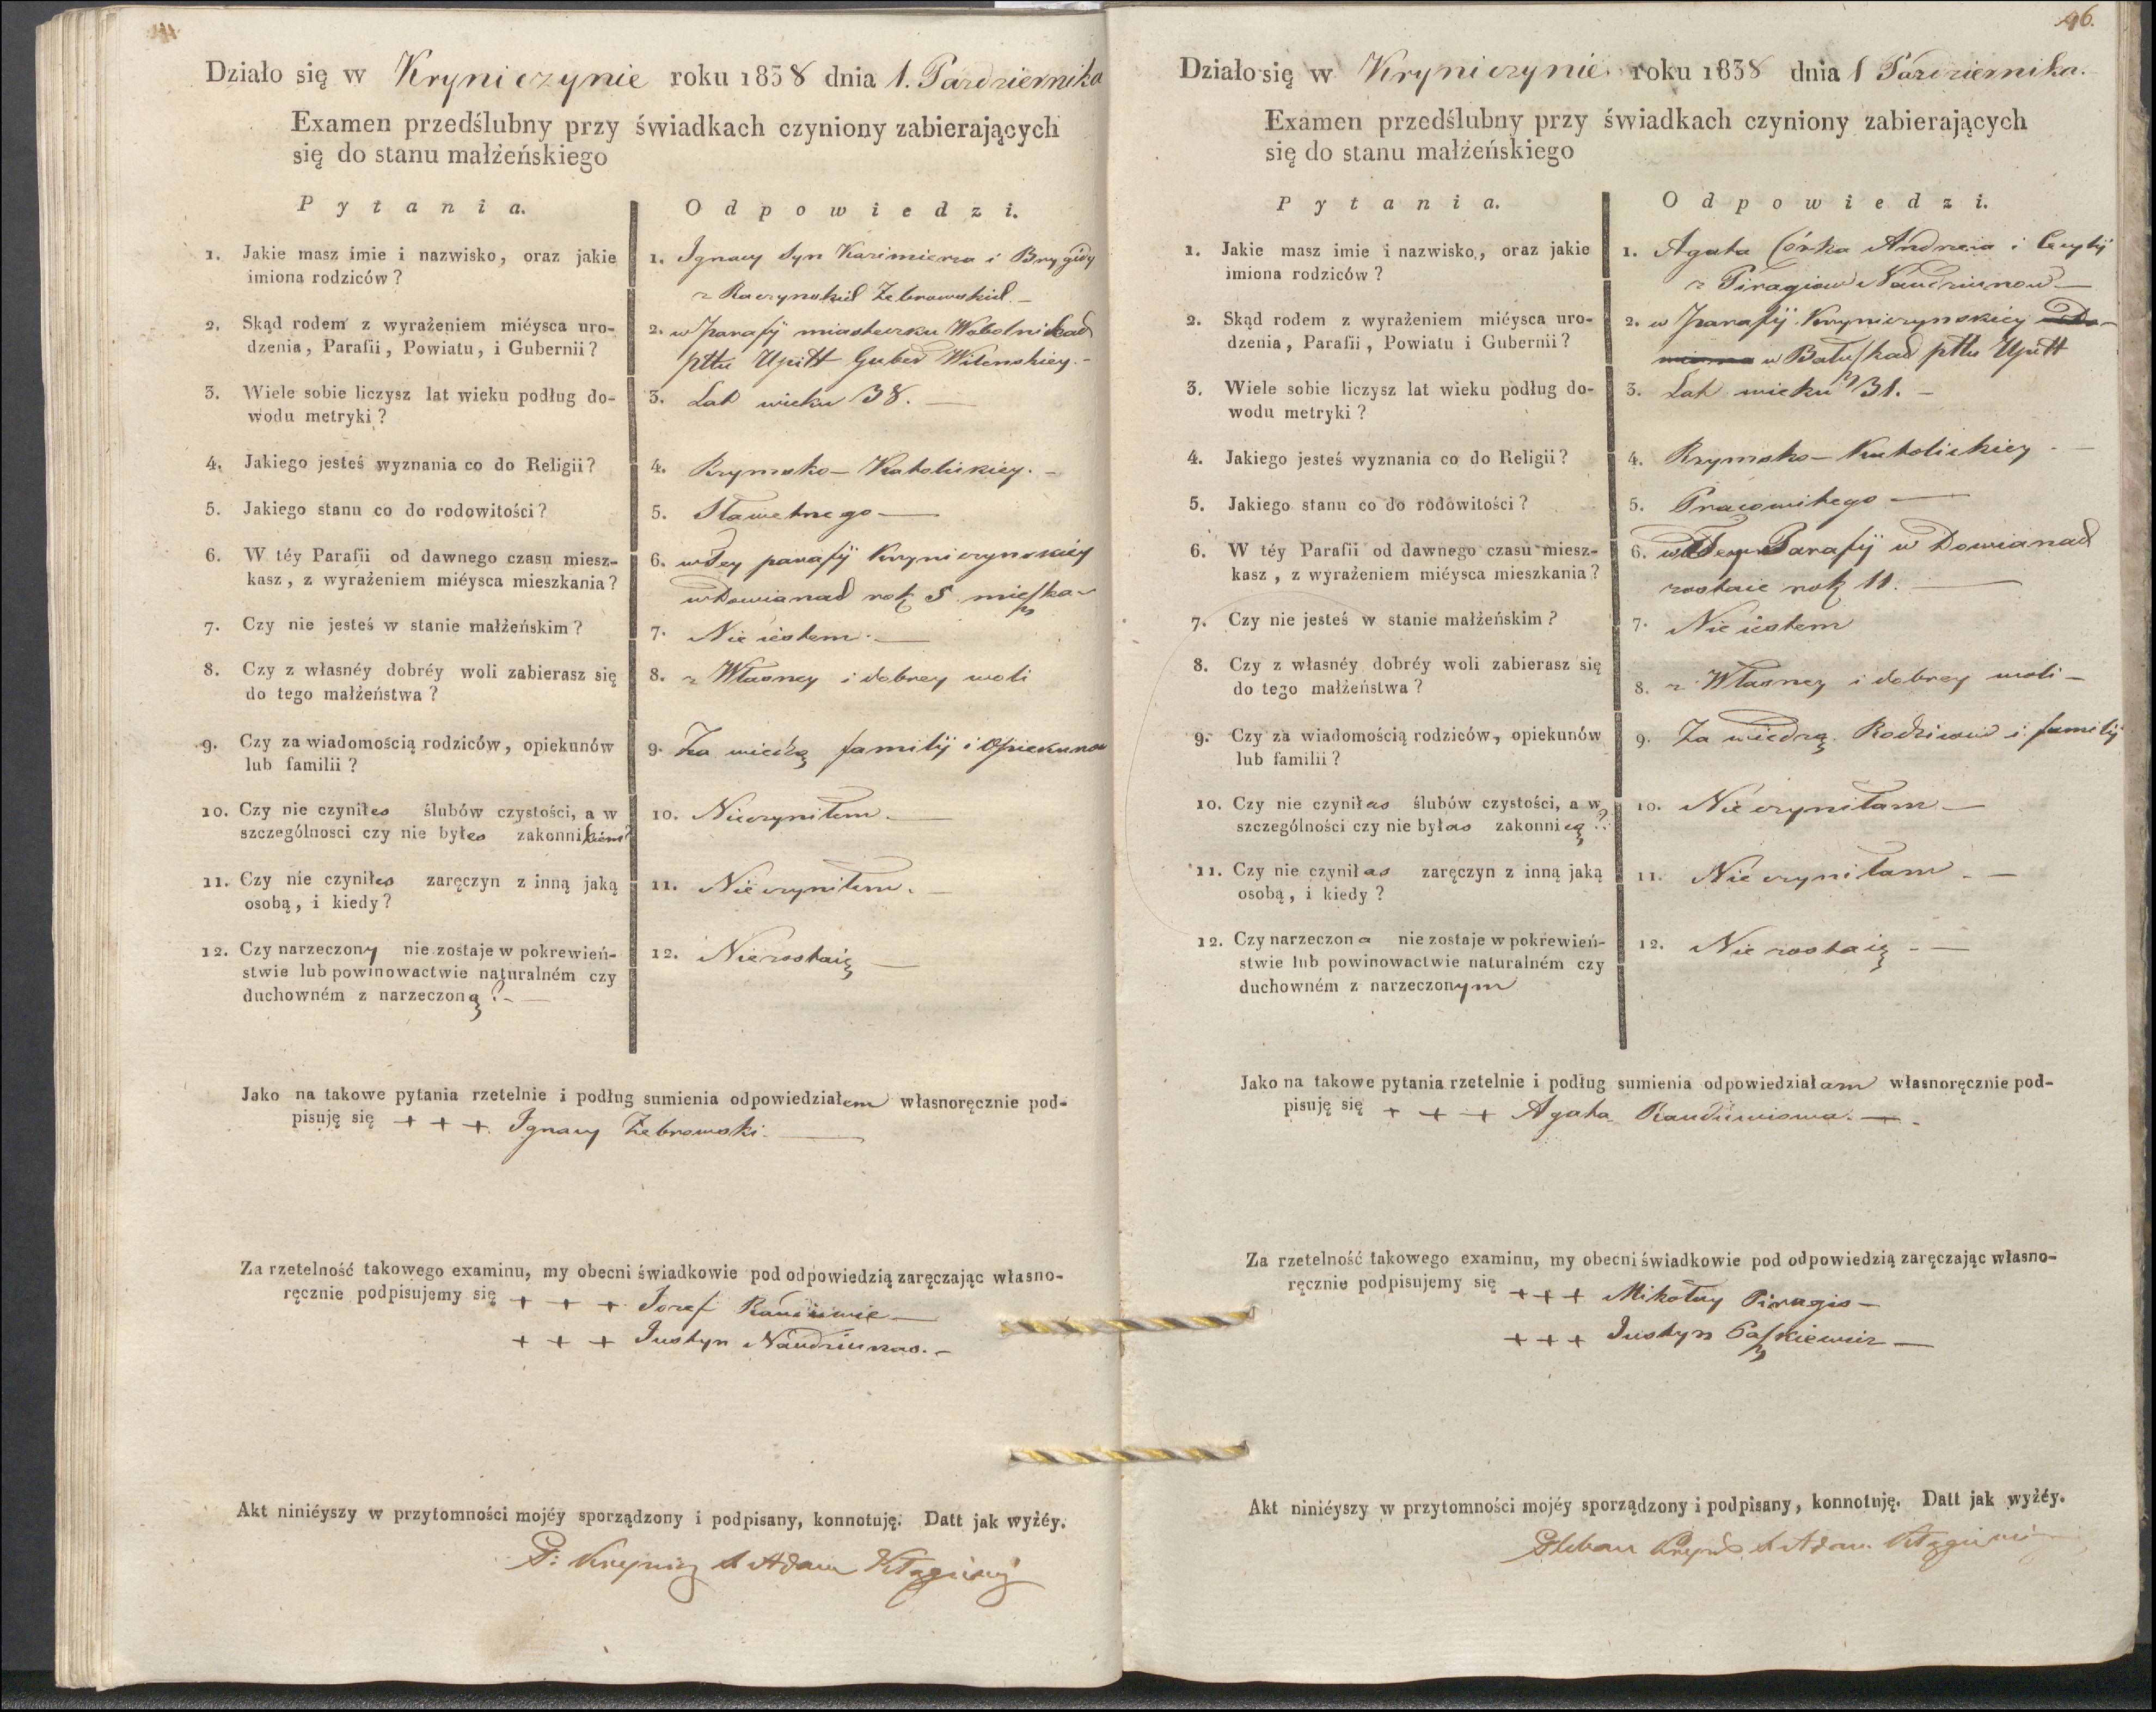 Działo się w Kryniczynie roku 1838 dnia 1. Pazdziernika
Examen przedślubny przy świadkach czyniony zabierających
się do stanu małżeńskiego
Pytania.
Odpowiedzi.
1. Jakie masz imie i nazwisko, oraz jakie
imiona rodziców?
1. Ignacy Syn Kazimierza i Brygidy
z Raczynskich Żebrowskich. –
2. Skąd rodem z wyrażeniem miéysca uro-
dzenia, Parafii, Powiatu, i Gubernii?
2. w parafij miasteczku Wobolnikach
pttu Upitt Guber Wilenskiey. –
3. Wiele sobie liczysz lat wieku podług do-
wodu metryki?
3. Lat wieku 38. –
4. Jakiego jesteś wyznania co do Religii?
4. Rzymsko-Katolickiey. –
5. Jakiego stanu co do rodowitości?
5. Sławetnego –
6. W téy Parafii od dawnego czasu miesz-
kasz, z wyrażeniem miéysca mieszkania?
6. w tey parafij Kryniczynskiey
w Dowianach rok 5 mieszka–
7. Czy nie jesteś w stanie małżeńskim?
7. Nie iestem. –
8. Czy z własnéy dobréy woli zabierasz się
do tego małżeństwa?
8. z Własney i dobrey woli
9. Czy za wiadomością rodziców, opiekunów
lub familii?
9. Za wiedzą familij i Opiekunow
10. Czy nie czyniłes ślubów czystości, a w
szczególnosci czy nie byłes zakonnikiem?
10. Nieczyniłem. –
11. Czy nie czyniłes zaręczyn z inną jaką
osobą, i kiedy?
11. Nie czyniłem. –
12. Czy narzeczony nie zostaje w pokrewień-
stwie lub powinowactwie naturalném czy
duchowném z narzeczoną? –
12. Niezostaię –
Jako na takowe pytania rzetelnie i podług sumienia odpowiedziałem własnoręcznie pod-
pisuję się + + +. Ignacy Żebrowski. –
Za rzetelność takowego examinu, my obecni świadkowie pod odpowiedzią zaręczając własno-
ręcznie podpisujemy się + + + Jozef –
+ + + Justyn Naudziunas. –
Akt niniéyszy w przytomności mojéy sporządzony i podpisany, konnotuję. Datt jak wyżéy.
P: Krynicz X Adam
96.
Działo się w Kryniczynie roku 1838 dnia 1 Pazdziernika.
Examen przedślubny przy świadkach czyniony zabierających
się do stanu małżeńskiego
Pytania.
Odpowiedzi.
1. Jakie masz imie i nazwisko, oraz jakie
imiona rodziców?
1. Agata Córka Andrzeia i Cecylij
z Piragiow Naudziunow –
2. Skąd rodem z wyrażeniem miéysca uro-
dzenia, Parafii, Powiatu i Gubernii?
2. w Parafij Kryniczynskiey
w Bałuszkach pttu Upitt
3. Wiele sobie liczysz lat wieku podług do-
wodu metryki?
3. Lat wieku 31. –
4. Jakiego jesteś wyznania co do Religii?
4. Rzymsko-Katolickiey –
5. Jakiego stanu co do rodowitości?
5. Pracowitego –
6. W téy Parafii od dawnego czasu miesz-
kasz, z wyrażeniem miéysca mieszkania?
6. w Tey Parafij w Dowianach
zostaie rok 11. –
7. Czy nie jesteś w stanie małżeńskim?
7. Nie iestem
8. Czy z własnéy dobréy woli zabierasz się
do tego małżeństwa?
8. z Własney i dobrey woli –
9. Czy za wiadomością rodziców, opiekunów
lub familii?
9. Za wiedzą Rodzicow i familij
10. Czy nie czyniłas ślubów czystości, a w
szczególności czy nie byłas zakonnicą?
10. Nie czyniłam –
11. Czy nie czyniłas zaręczyn z inną jaką
osobą, i kiedy?
11. Nie czyniłam. –
12. Czy narzeczona nie zostaje w pokrewień-
stwie lub powinowactwie naturalném czy
duchowném z narzeczonym
12. Nie zostaię. –
Jako na takowe pytania rzetelnie i podług sumienia odpowiedziałam własnoręcznie pod-
pisuję się + + + Agata –
Za rzetelność takowego examinu, my obecni świadkowie pod odpowiedzią zaręczając własno-
ręcznie podpisujemy się + + + Mikołay Piragis –
+ + + Justyn Paszkiewicz –
Akt niniéyszy w przytomności mojéy sporządzony i podpisany, konnotuję. Datt jak wyżéy.
Pleban X Adam